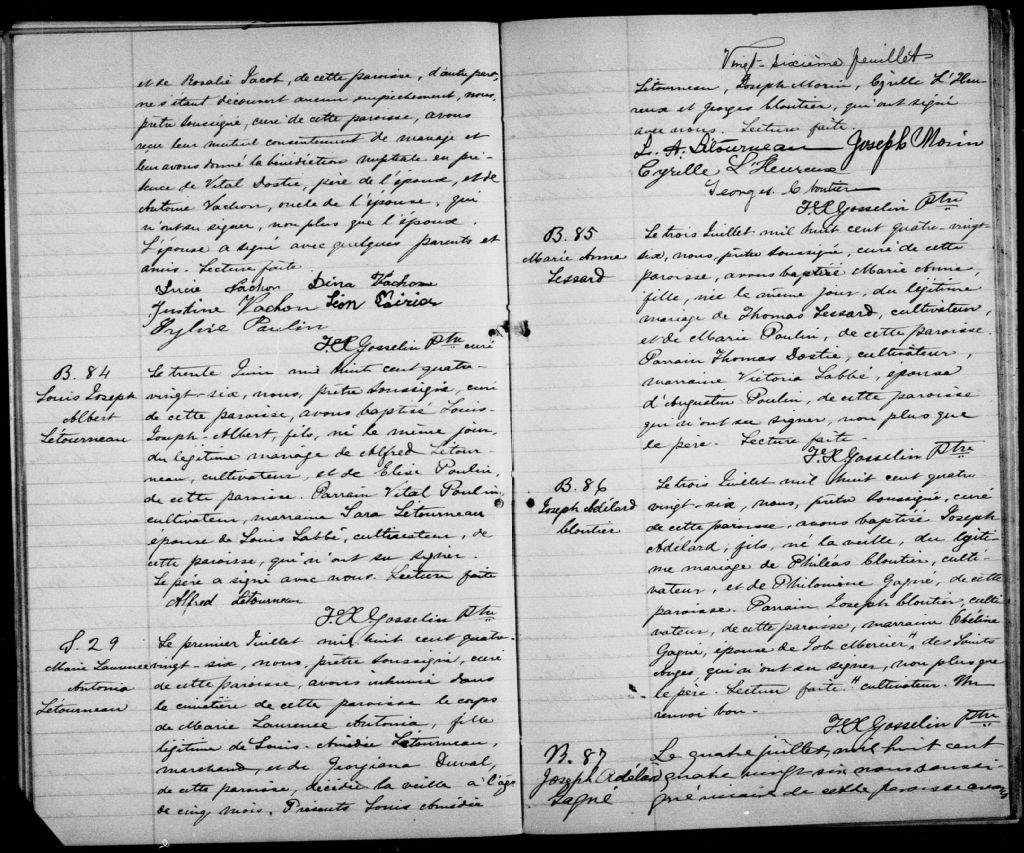 et de Rosalie Jacob, de cette paroisse, d'autre part,
ne s'étant découvert aucun empêchement, nous,
prêtre soussigné, curé de cette paroisse, avons
reçu leur mutuel consentement de mariage et
leur avons donné la bénédiction nuptiale en pré-
sence de Vital Dostie, père de l'époux, et de
Antoine Vachon, oncle de l'épouse, qui
n'ont su signer, non plus que l'époux.
L'épouse a signé avec quelques parents et
amis. Lecture faite.
Vachon Dina Vachon
Justine Vachon Léon
Sylvie Paulin
F.X Gosselin Ptre curé
B. 84
Louis Joseph
Albert
Létourneau
Le trente Juin mil huit cent quatre-
vingt-six, nous, prêtre soussigné, curé
de cette paroisse, avons baptisé Louis-
Joseph-Albert, fils, né le même jour,
du légitime mariage de Alfred Létour-
neau, cultivateur, et de Elise Poulin,
de cette paroisse. Parrain Vital Poulin,
cultivateur, marraine Sara Létourneau
épouse de Louis Labbé, cultivateur, de
cette paroisse, qui n'ont su signer.
Le père a signé avec nous. Lecture faite
Alfred Létourneau
F.X Gosselin Ptre
S. 29
Marie Laurence
Antonia
Létourneau
Le premier Juillet mil huit cent quatre-
vingt-six, nous, prêtre soussigné, curé
de cette paroisse, avons inhumé dans
le cimetière de cette paroisse le corps
de Marie Laurence Antonia, fille
légitime de Louis-Amédée Létourneau,
marchand, et de Georgiana Duval,
de cette paroisse, décédée la veille à l'âge
de cinq mois. Présents Louis Amédée
Vingt-sixième feuillet
Létourneau, Joseph Morin, Cyrille L'Heu-
reux et Georges Cloutier, qui ont signé
avec nous. Lecture faite.
L. A. Létourneau Joseph Morin
Cyrille L'Heureux
Georges Cloutier
F.X Gosselin Ptre
B. 85
Marie Anne
Lessard
Le trois Juillet mil huit cent quatre-vingt-
six, nous, prêtre soussigné, curé de cette
paroisse, avons baptisé Marie Anne,
fille, née le même jour, du légitime
mariage de Thomas Lessard, cultivateur,
et de Marie Poulin, de cette paroisse.
Parrain Thomas Dostie, cultivateur,
marraine Victoria Labbé, épouse
d'Augustin Poulin, de cette paroisse
qui n'ont su signer, non plus que
le père. Lecture faite.
F.X Gosselin Ptre
B. 86
Joseph Adélard
Cloutier
Le trois Juillet mil huit cent quatre
vingt-six, nous, prêtre soussigné, curé
de cette paroisse, avons baptisé Joseph
Adélard, fils, né la veille, du légiti-
me mariage de Philéas Cloutier, culti-
vateur, et de Philomène Gagné, de cette
paroisse. Parrain Joseph Cloutier, culti-
vateur, de cette paroisse, marraine
Gagné, épouse de Job Mercier", des Saints
Anges, qui n'ont su signer, non plus que
le père. Lecture faite. " cultivateur. Un
renvoi bon.
F.X Gosselin Ptre
B. 87
Joseph Adélard
Gagné
Le quatre juillet mil huit cent
quatre vingt six nous soussi
gné vicaire de cette paroisse avons